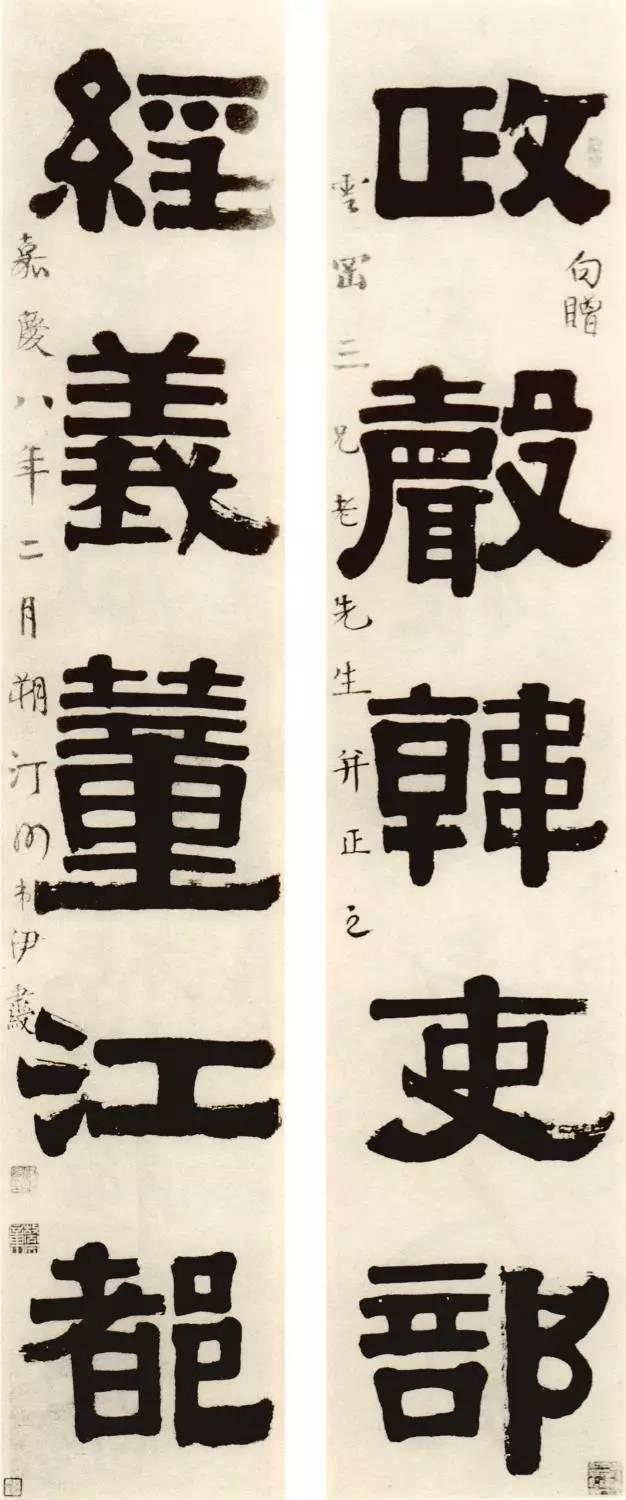 政聲韓吏部
句贈
雲岩三兄老先生并正之
經義董江都
嘉慶八年二月朔汀州伊秉綬